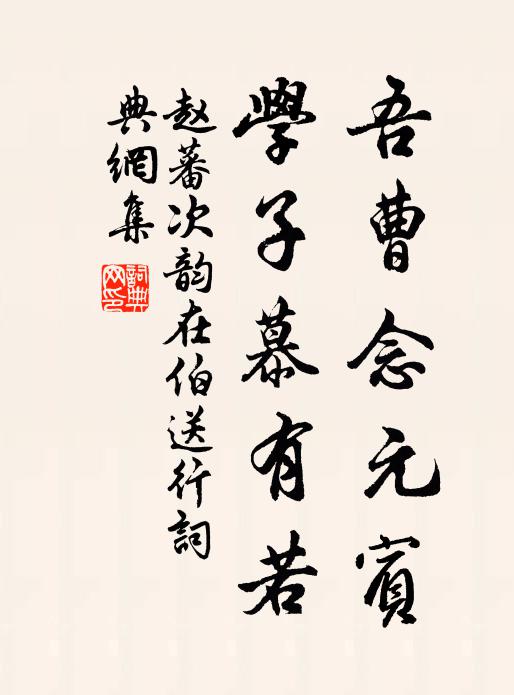 吾曹念元賓
學子慕有若
赵蕃次韵在伯送行詞
典網集
詞典網印